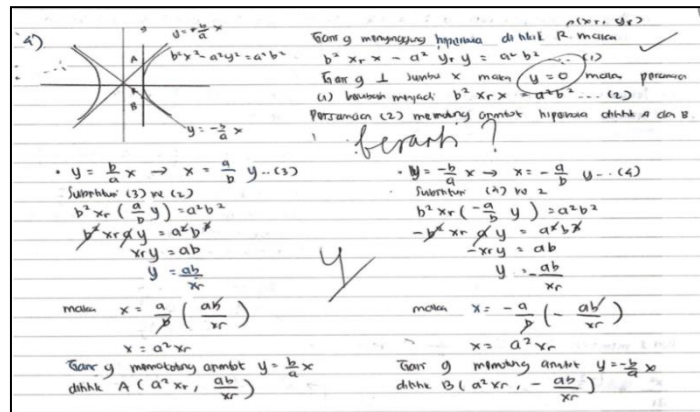 4)
y = b/a x
b²x² - a²y² = a²b²
A
B
y = -b/a x
R(xr, yr)
Garis g menyinggung hiperbola di titik R maka
b² xr x - a² yr y = a² b² ... (1)
Garis g ⊥ sumbu x maka y = 0 maka persamaan
(1) berubah menjadi b² xr x = a²b² ... (2)
Persamaan (2) memotong asimtot hiperbola dititik A dan B.
berarti ?
• y = b/a x → x = a/b y .. (3)
Substitusi (3) ke (2)
b² xr (a/b y) = a²b²
b² xr a y = a²b²
xr y = ab
y = ab/xr
maka x = a/b (ab/xr)
x = a² xr
Garis g memotong asimtot y = b/a x
dititik A (a² xr, ab/xr)
• y = -b/a x → x = -a/b y .. (4)
Substitusi (4) ke 2
b² xr (-a/b y) = a²b²
-b² xr a y = a²b²
-xr y = ab
y = -ab/xr
maka x = -a/b (-ab/xr)
x = a² xr
Garis g memotong asimtot y = -b/a x
dititik B (a² xr, -ab/xr)